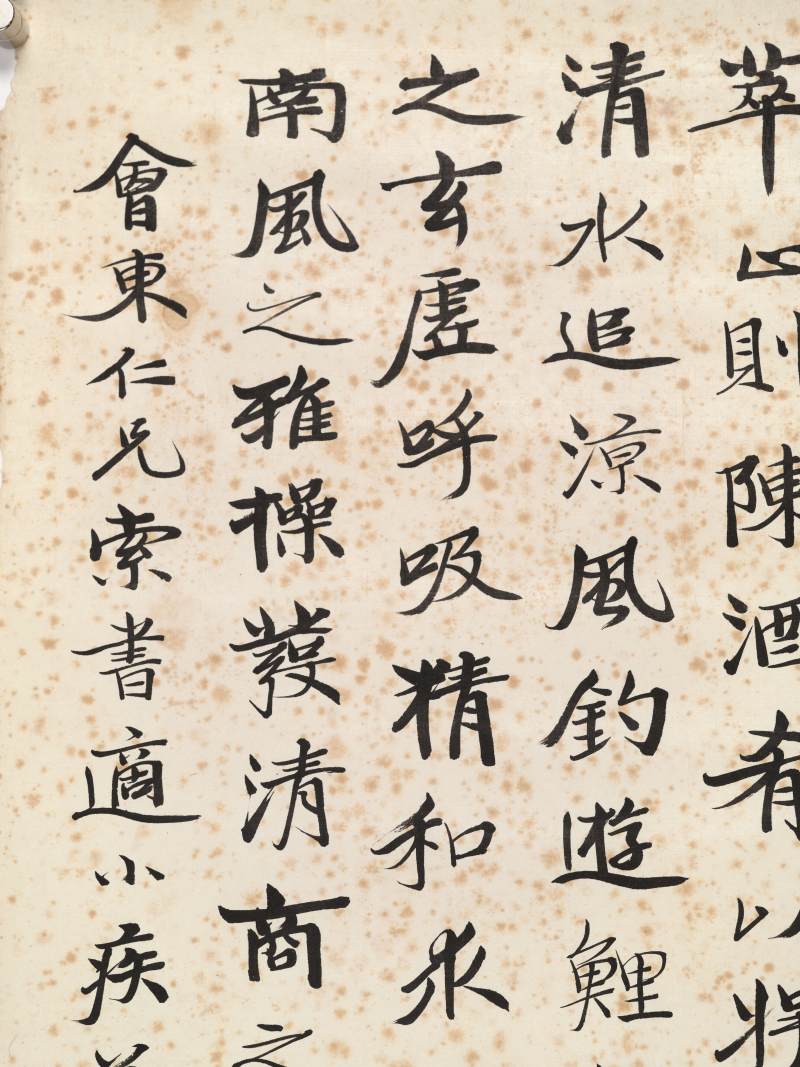 萃止則陳酒肴以
清水追涼風釣遊鯉
之玄虛呼吸精和求
南風之雅操發清商之
會東仁兄索書適小疾